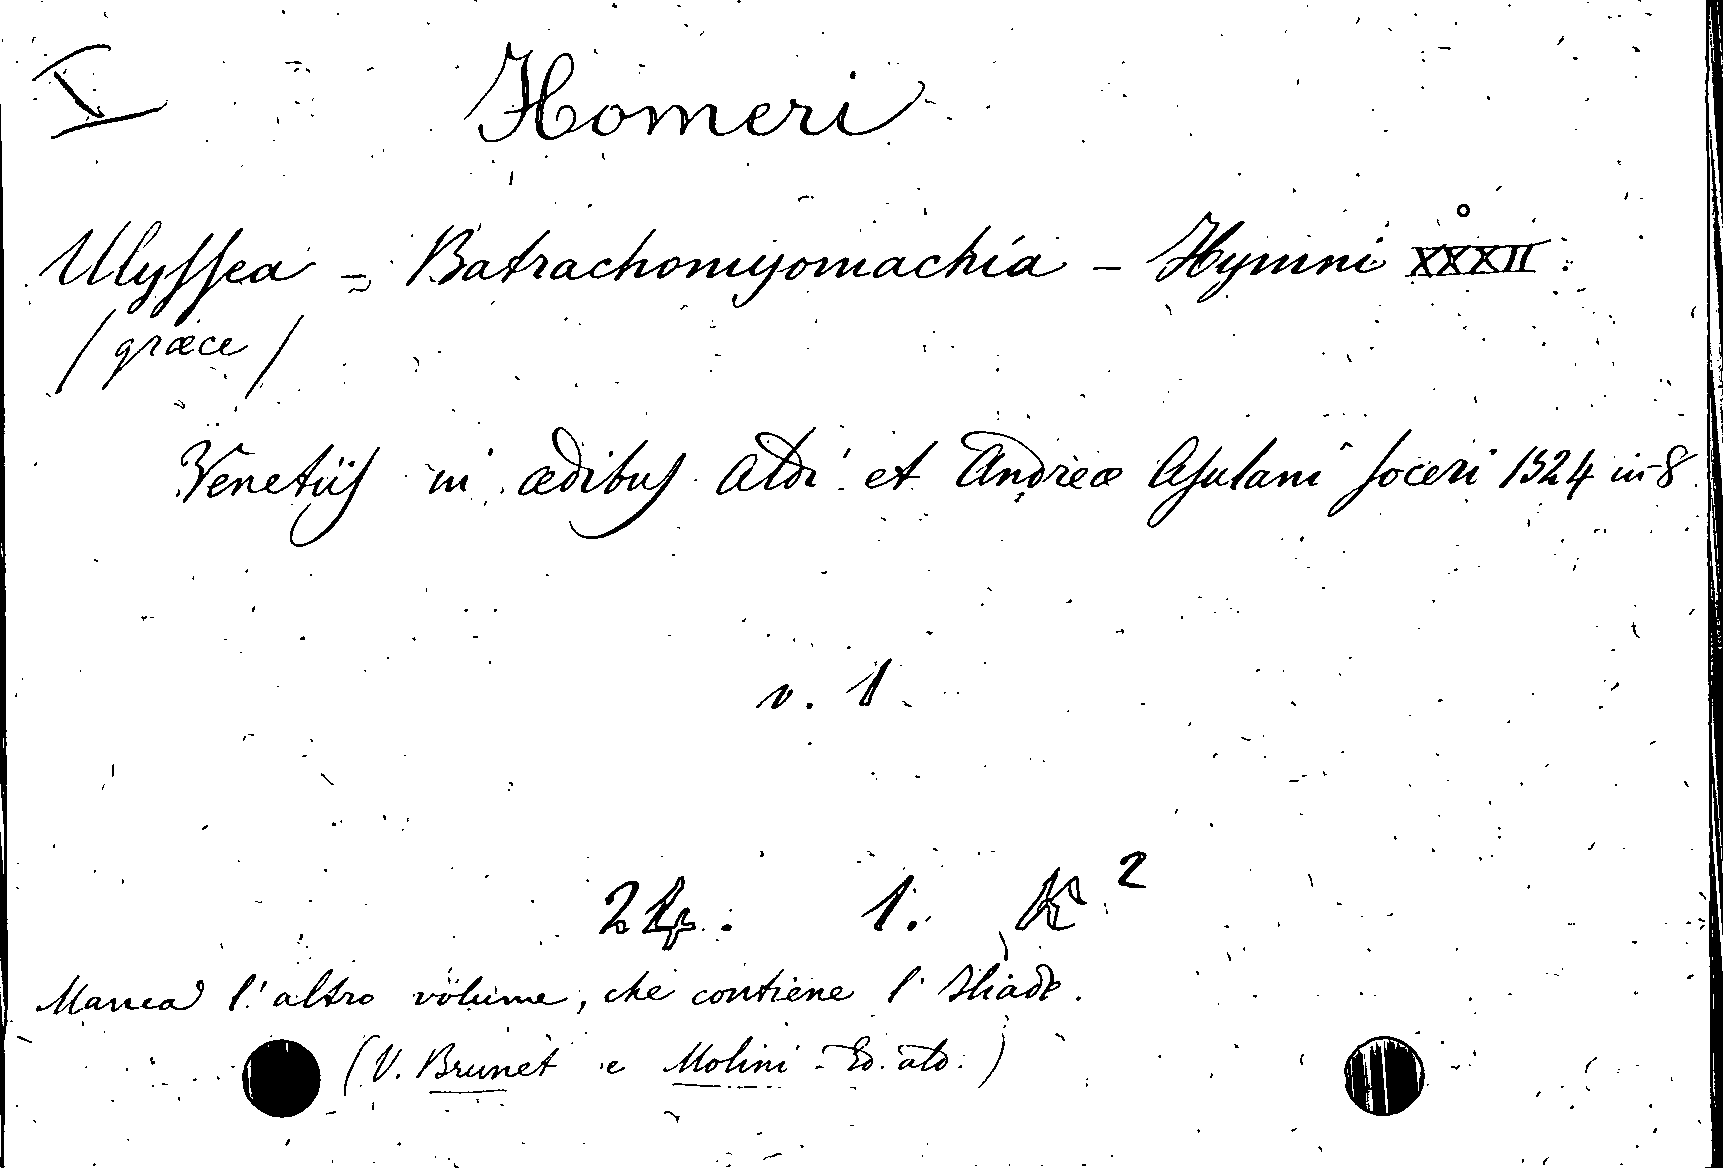 I Homeri
Ulyssea - Batrachomyomachia - Hymni XXXII.
/ græce /
Venetiis in ædibus Aldi et Andreæ Asulani soceri 1524 in-8
v. 1.
24. 1. K 2
Manca l'altro volume, che contiene l'Iliade.
(V. Brunet e Molini - Ed. ald.)